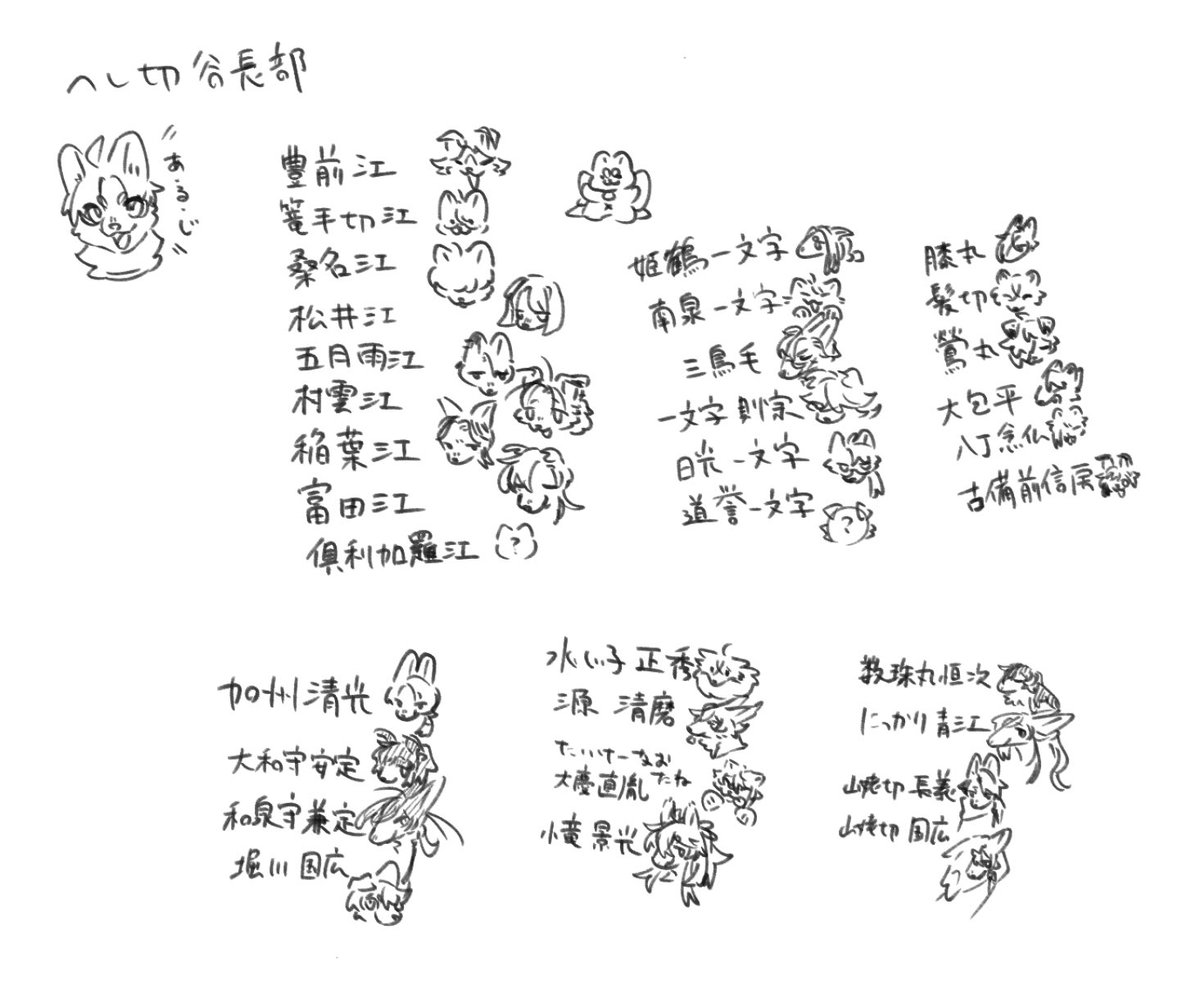 へし切谷長部
あ・る・じ
豊前江
篭手切江
桑名江
松井江
五月雨江
村雲江
稲葉江
富田江
倶利加羅江
?
姫鶴一文字
南泉一文字
三鳥毛
一文字則宗
日光一文字
道誉一文字
?
膝丸
髪切
鶯丸
大包平
八丁念仏
古備前信房
加州清光
大和守安定
和泉守兼定
堀川国広
水心子正秀
源清磨
たいけーなお
大慶直胤たね
小竜景光
数珠丸恒次
にっかり青江
山姥切長義
山姥切国広